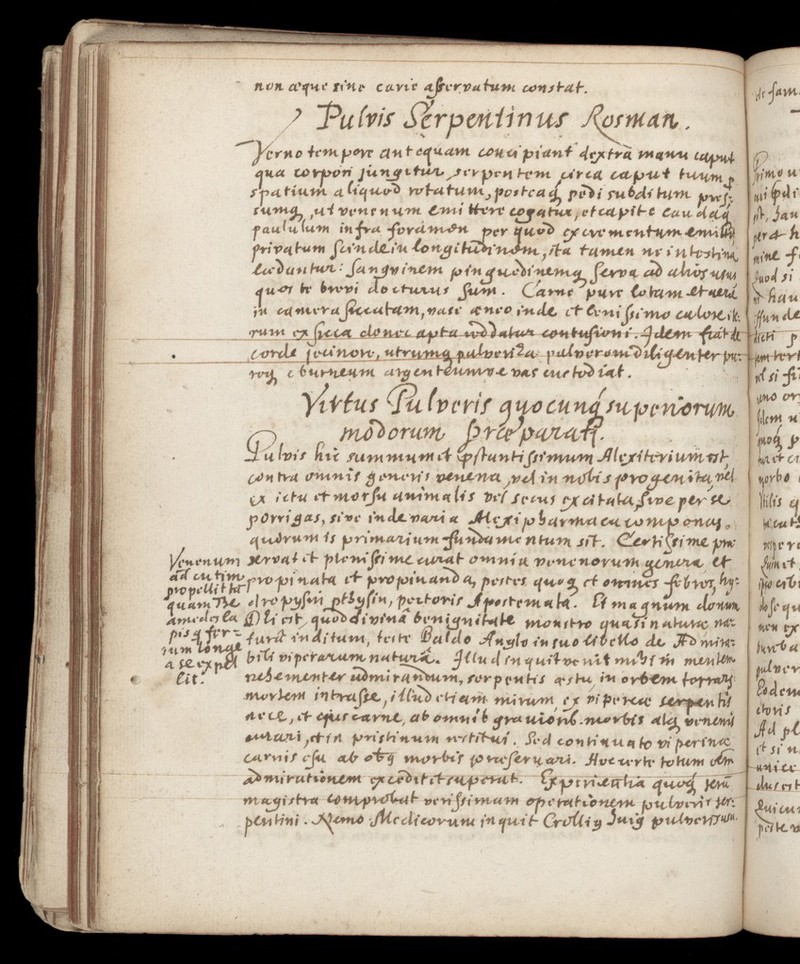 non æque sine carie asservatum constat.
Pulvis Serpentinus Rosman.
Verno tempore antequam concipiant dextrâ manu caput
qua corpori jungitur, serpentem circa caput tuum p
spatium aliquod rotatum, postcaq pedi subditum pres:
sumq, ut venenum emittere cogatur, et capite caudaq
paululum infra foramen per quod excrementum emitti
privatum scinde in longitudinem, ita tamen ne intestina
lædantur: sanguinem pinguedinemq serva ad alios usus
quos te brevi docturus sum. Carnē pure lotam et aeri
in camera siccatam, vase æneo inde et lenissimo calore ite:
rum exsicca donec apta reddatur contusioni. Idem fiat de
corde jecinore, utrumq pulveriza pulverem diligenter
eburneum argenteumve vas custodiat.
Virtus Pulveris quocunq superiorum
modorum præparati.
Pulvis hic summum et pstantissimum Alexiterium est
contra omnis generis venena, vel in nobis progenita, vel
ex ictu et morsu animalis vel secus excitata, sive per se
porrigas, sive inde varia Alexipharmaca componas.
quorum is primarium fundamentum sit. Certissime pre
servat et plenissime curat omnia venenorum genera, et
propinata et propinanda, pestes quoq et omnes febres, hy:
dropysin pthysin, pectoris Apostemata. Et magnum donum
Dei est, quod divinâ benignitate monstro quasi naturæ na:
turâ inditum, teste Baldo Anglo in suo libello de Admira:
bili viperarum naturâ. Illud inquit venit mihi in mentem
vehementer admirandum, serpentis æstu in orbem terrarū
mortem intrasse, illud etiam mirum, ex vipereæ serpentis
nece, et ejus carne, ab omnib gravioribˢ morbis atq venenis
curari, et in pristinum restitui. Sed continuato viperinæ
carnis esu ab morbis præservari. Hoc certe totum oēm
admirationem excedit et superat. Experientia quoq rerū
magistra comprobat verissimam operationem pulveris ser:
pentini. Nemo Medicorum inquit Crollius hujus pulveris usu
Venenum
ad cutim
propellit ta
quam The
amedes la
pis q fer:
rum longe
a se expel
lit.